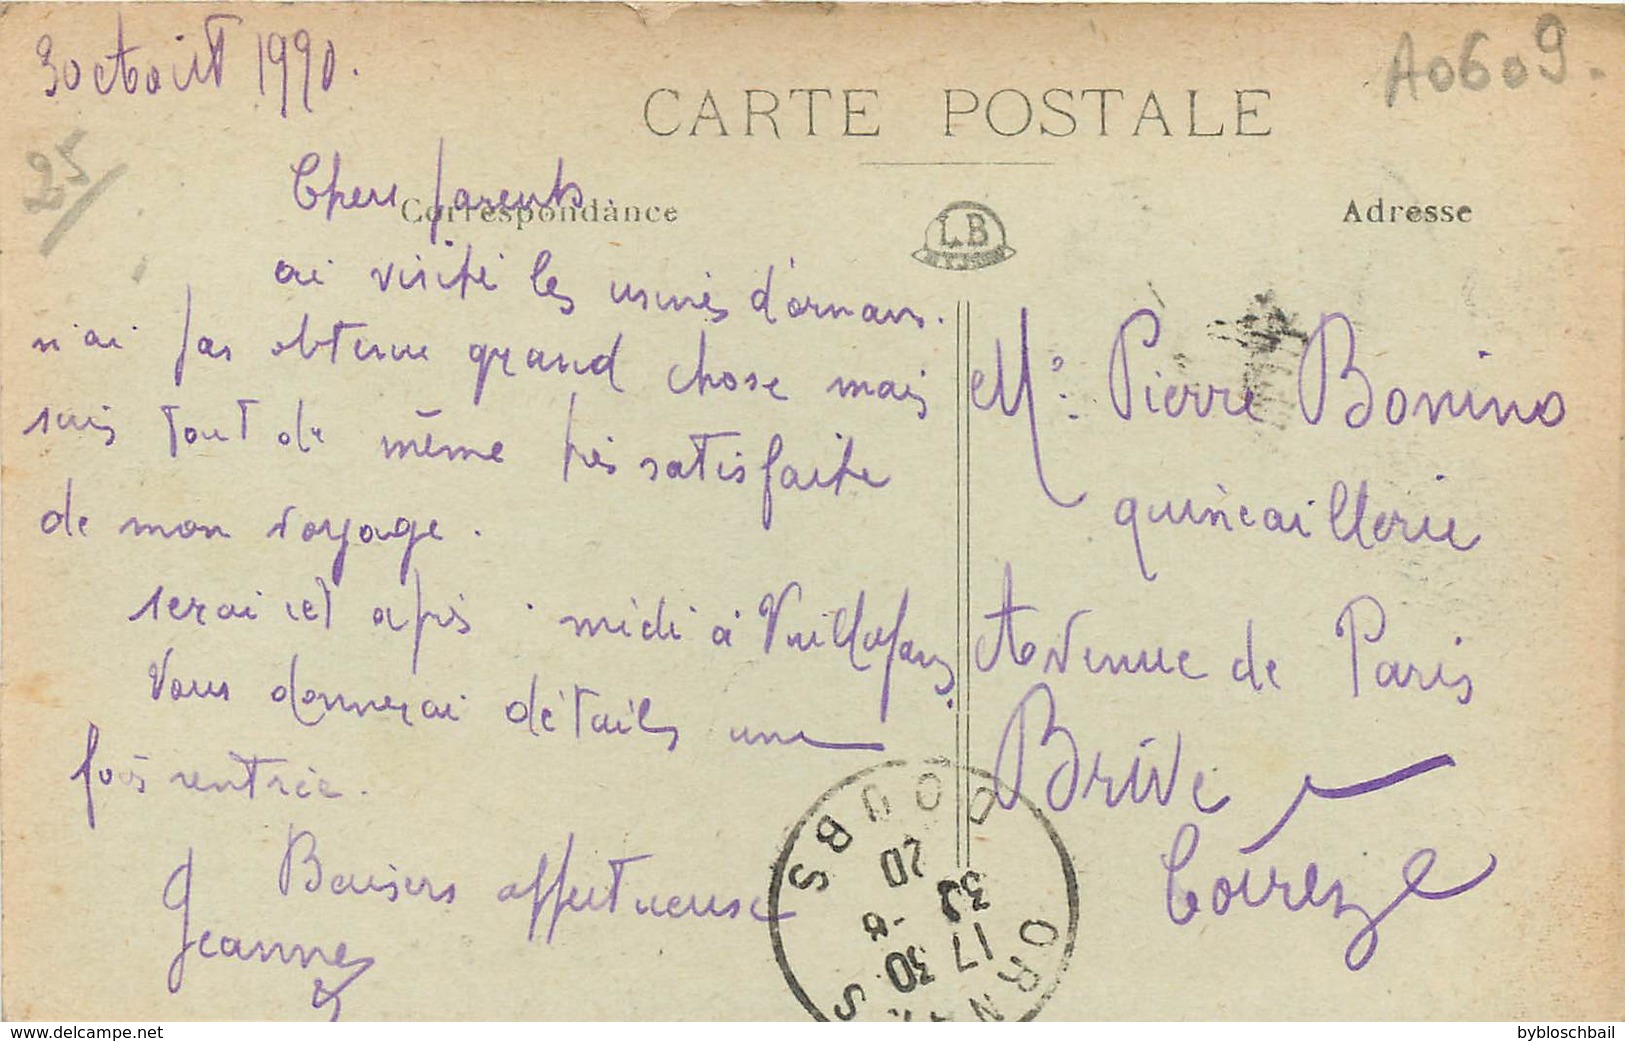 30 Août 1920.
A0609.
25
CARTE POSTALE
Correspondance
Adresse
LB
Chers parents
ai visité les usines d'ornans.
n'ai pas obtenue grand chose mais
suis tout de même très satisfaite
de mon voyage.
serai cet après-midi à Vuillafans.
Vous donnerai détails une
fois rentrée.
Baisers affectueuse
Jeanne
Mr: Pierre Bonino
quincaillerie
Avenue de Paris
Brive
Corrèze
ORNANS
DOUBS
17 30
20
www.delcampe.net
bybloschbail